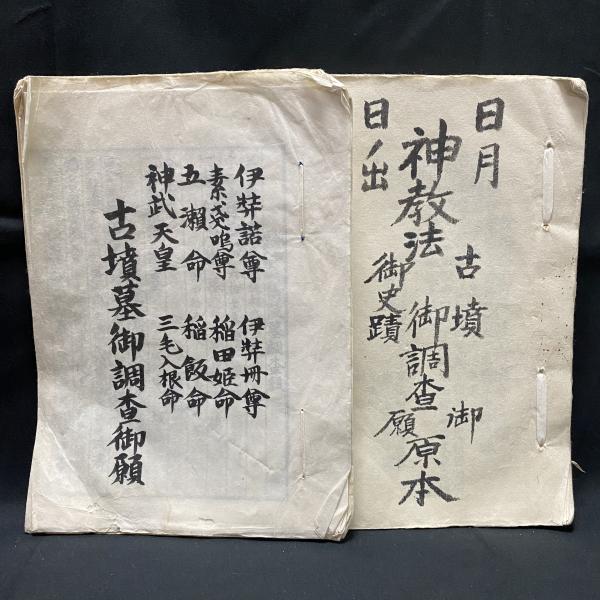 伊弉諾尊 伊弉冊尊
素戔嗚尊 稲田姫命
五瀬命 稲飯命
神武天皇 三毛入根命
古墳墓御調査御願
日月
古墳 御
神教法 御調査原本
御史蹟 願
日ノ出